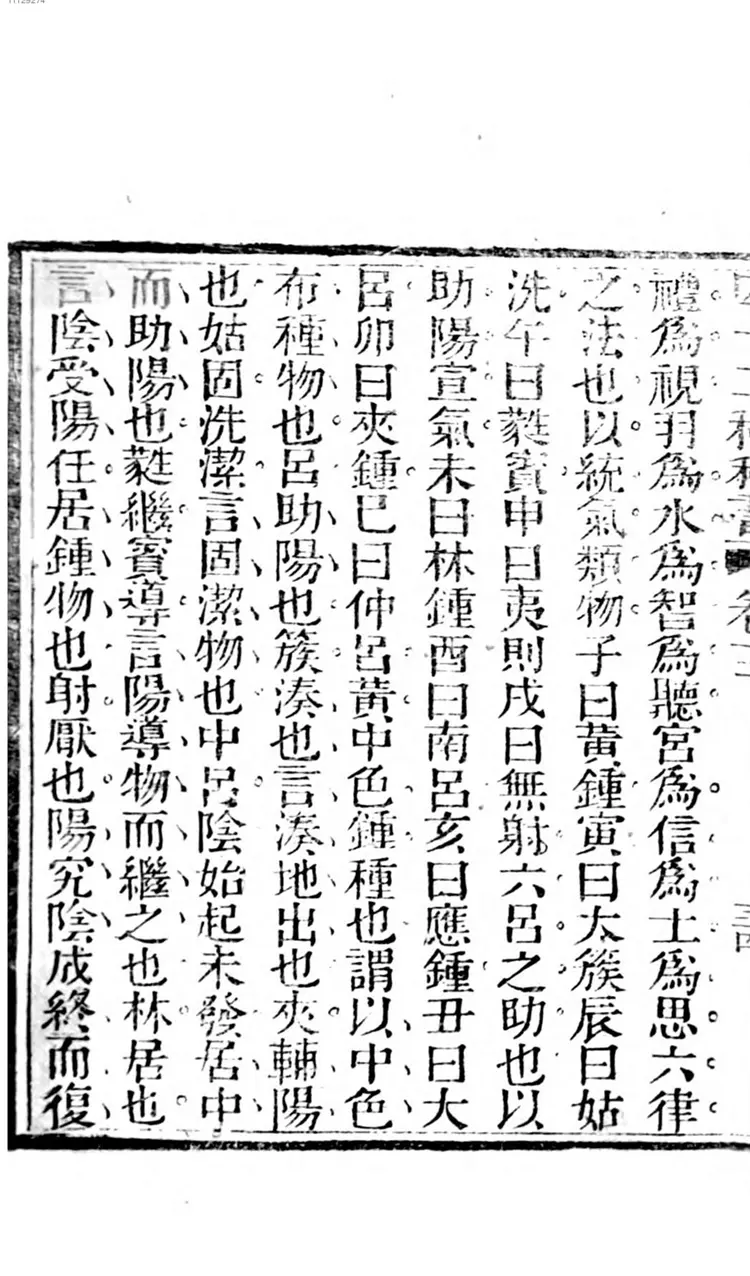 11129274
卷三
禮爲視羽爲水爲智爲聽宮爲信爲土爲思六律
之法也以統氣類物子曰黃鍾寅曰太簇辰曰姑
洗午曰蕤賓申曰夷則戌曰無射六呂之助也以
助陽宣氣未曰林鍾酉曰南呂亥曰應鍾丑曰大
呂卯曰夾鍾巳曰仲呂黃中色鍾種也謂以中色
布種物也呂助陽也簇湊也言湊地出也夾輔陽
也姑固洗潔言固潔物也中呂陰始起未發居中
而助陽也蕤繼賓導言陽導物而繼之也林居也
言陰受陽任居鍾物也射厭也陽究陰成終而復